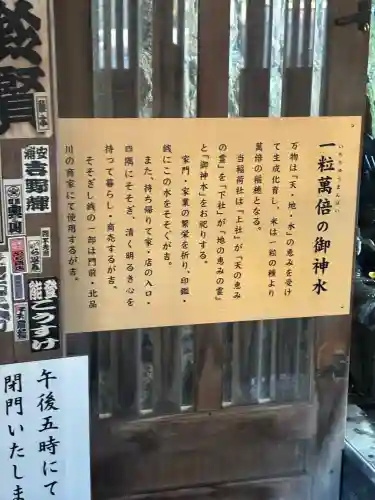 一粒萬倍の御神水
いちりゅうまんばい
万物は「天・地・水」の恵みを受け
て生成化育し、米は一粒の種より
萬倍の稲穂となる。
当稲荷社は「上社」が「天の恵み
の霊」を「下社」が「地の恵みの霊」
と「御神水」をお祀りする。
家門・家業の繁栄を祈り、印鑑・
銭にこの水をそそぐが吉。
また、持ち帰りて家・店の入口・
四隅にそそぎ、清く明るき心を
持って暮らし・商売するが吉。
そそぎし銭の一部は門前・北品
川の商家にて使用するが吉。
午後五時にて
閉門いたしま